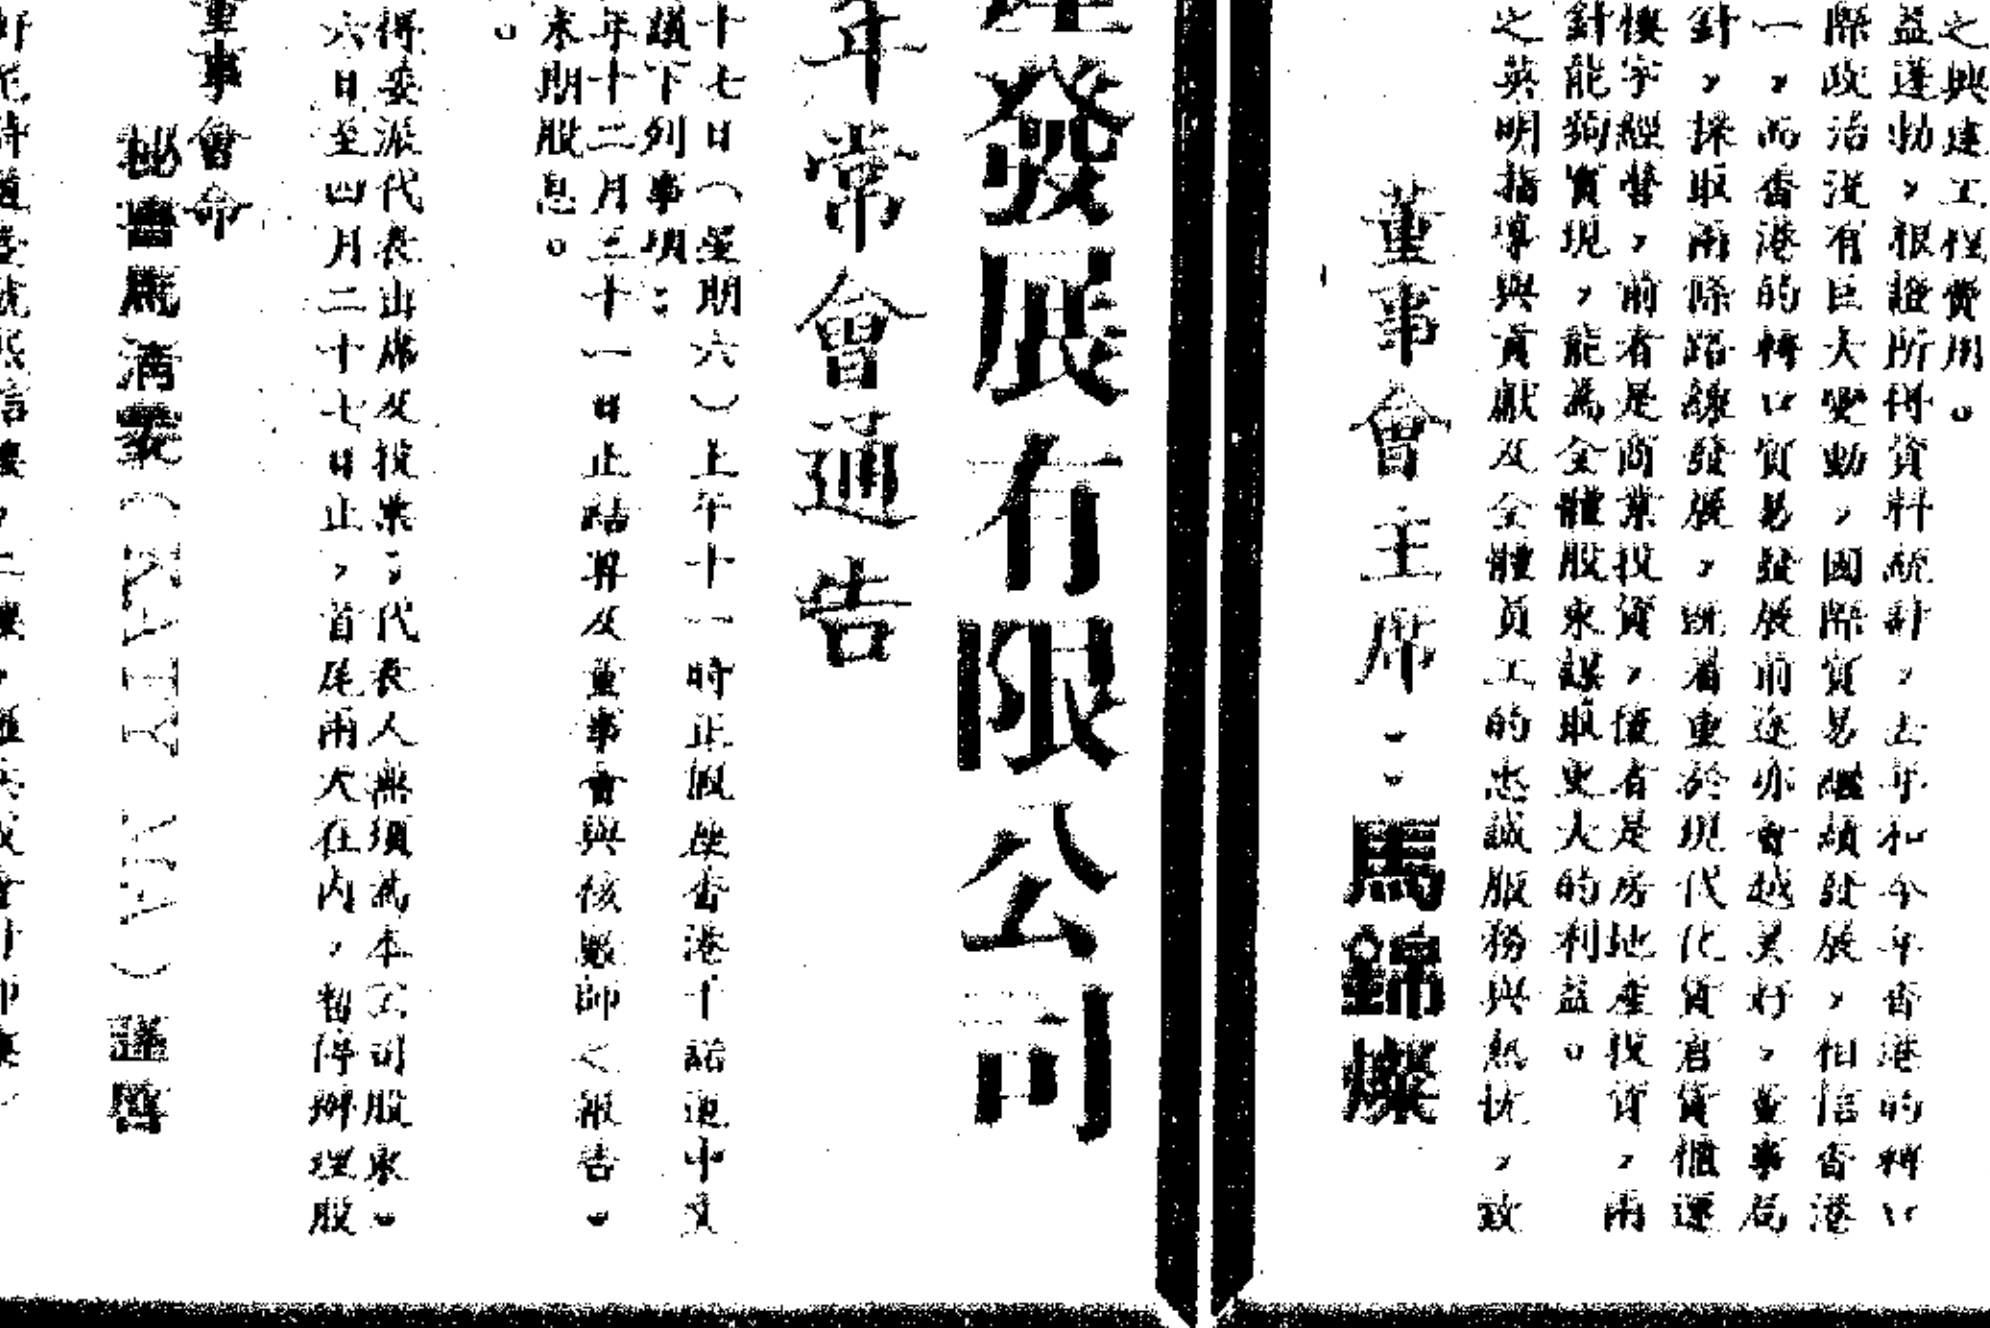 之興建工程費用。
益蓬勃，根據所得資料統計，去年和今年香港的轉口
際政治沒有巨大變動，國際貿易繼續發展，相信香港
一，而香港的轉口貿易發展前途亦會越美好，董事局
針，採取兩條路線發展，既着重於現代化貨倉貨櫃運
樓宇經營，前者是商業投資，後者是房地產投資，兩
針能夠實現，能為全體股東謀取更大的利益。
之英明指導與貢獻及全體員工的忠誠服務與熱忱，致
董事會主席：馬錦燦
發展有限公司
年常會通告
十七日（星期六）上午十一時正假座香港干諾道中
議下列事項：
年十二月三十一日止結算及董事會與核數師之報告。
末期股息。
得委派代表出席及投票；代表人無須為本公司股東。
六日至四月二十七日止，首尾兩天在內，暫停辦理股
董事會命
秘書馬清（KATY MA）謹啓